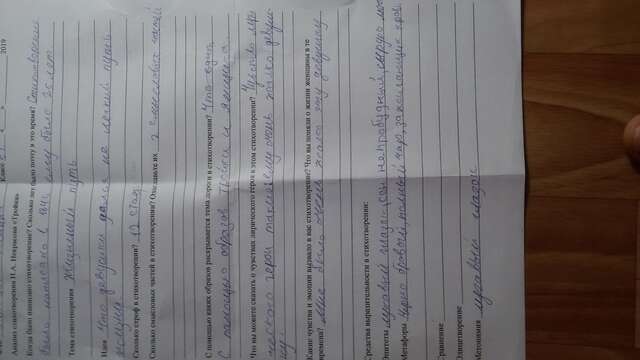 Класс
2019
Анализ стихотворения Н.А. Некрасова «Тройка»
Когда было написано стихотворение? Сколько лет было поэту в это время? Стихотворение
было написано в ему было 25 лет.
Тема стихотворения Жизненный путь
Идея Что девушки дался не легкий путь
жизни.
Сколько строф в стихотворении? 12
Сколько смысловых частей в стихотворении? Озаглавьте их 2 смысловых частей
С помощью каких образов раскрывается тема дороги в стихотворении?
С помощью образов тройки и ямщика.
Что вы можете сказать о чувствах лирического героя в этом стихотворении? Чувство лири
ческого героя
Какие чувства и эмоции вызвало в вас стихотворение? Что вы поняли о жизни женщины в те
времена? Мне было очень жалко эту девушку
Средства выразительности в стихотворении:
Эпитеты лукавый глазок, сон непробудный, сырую
Метафоры Черно бровый, полный чар,
Сравнение
Олицетворение
Метонимия лукавый глазок